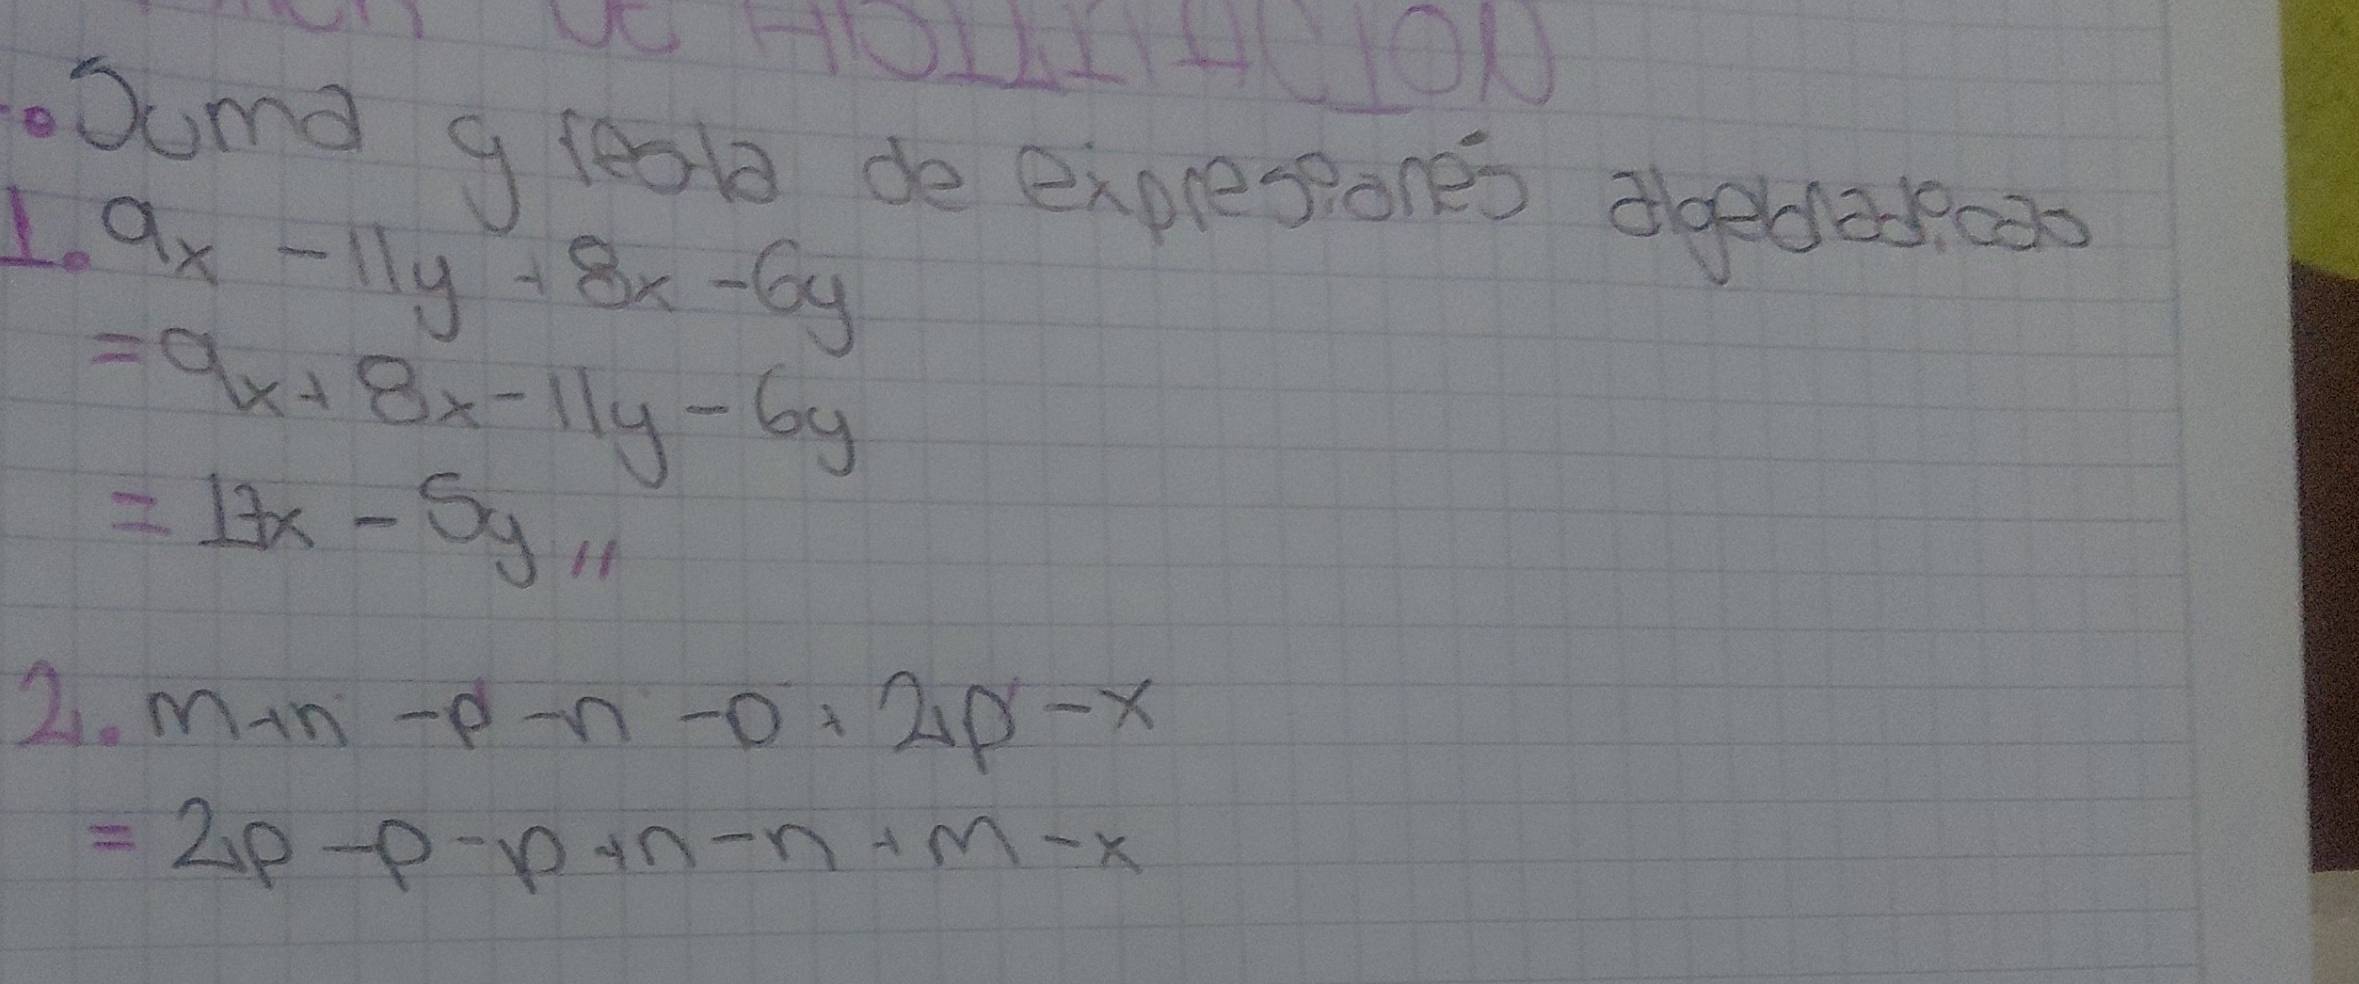 DE
• Suma y resta de expresiones algebraicas
1. 9x - 11y + 8x - 6y
= 9x + 8x - 11y - 6y
= 17x - 5y //
2. m + n - p - n - p + 2p - x
= 2p - p - p + n - n + m - x